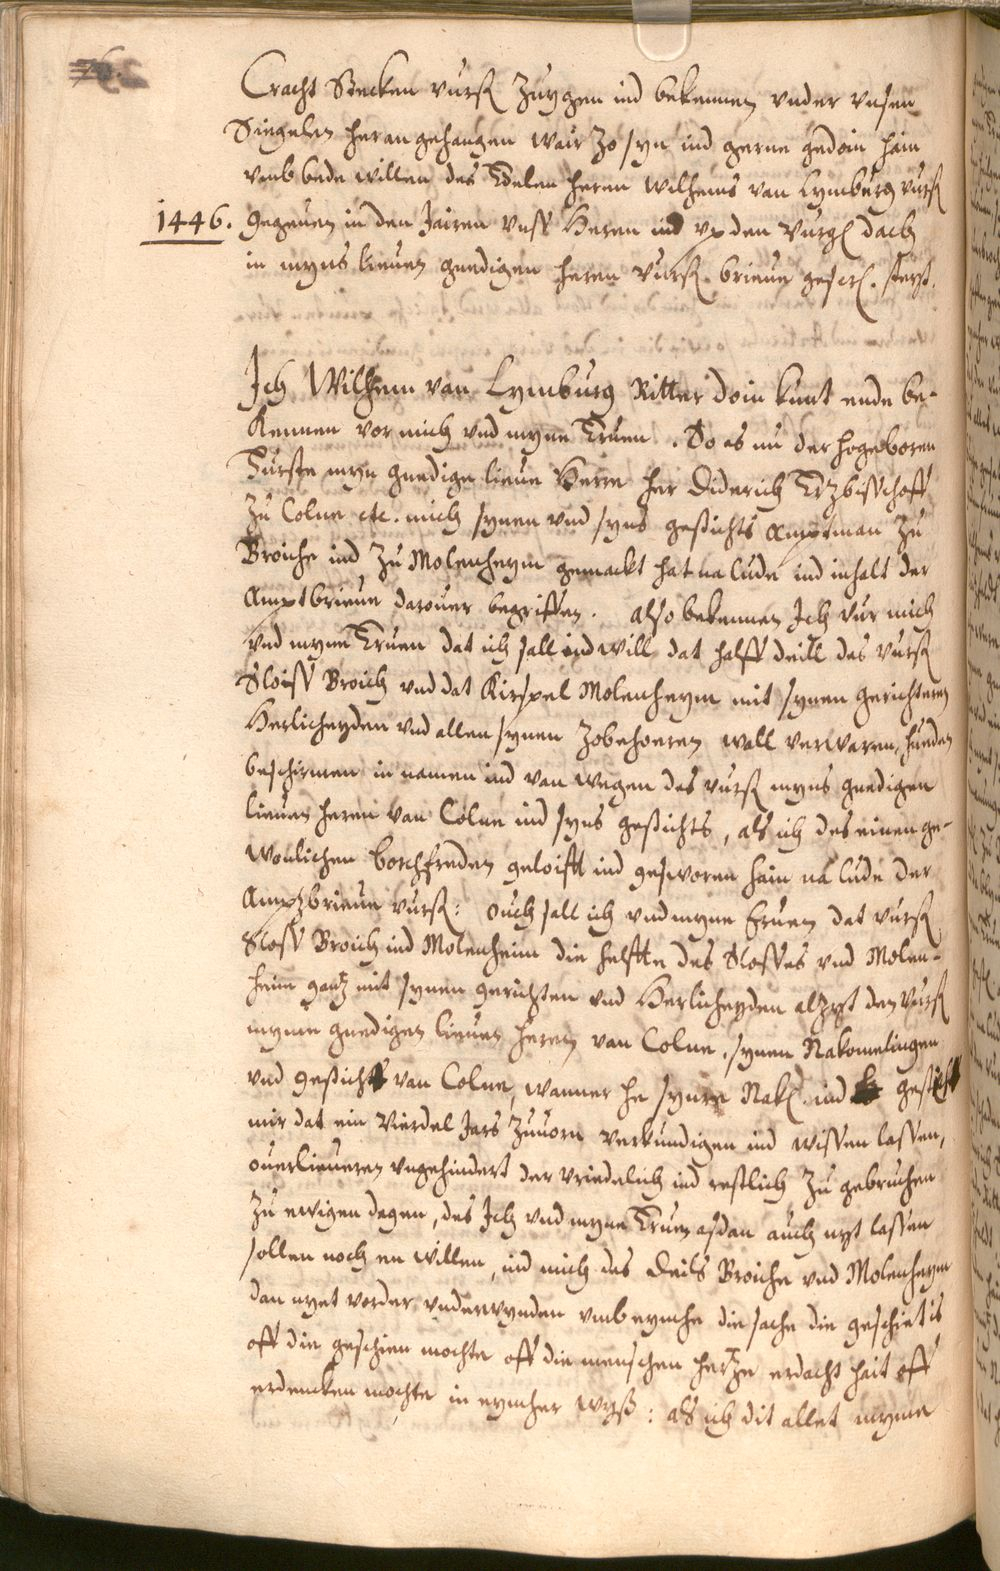 Cracht Stecken vurß Zuygen ind bekennen vnder vnsen
Siegelen heran gehangen wair Zo syn ind gerne gedoin hain
vmb bede willen des Edelen heren Wilhems van Lymburg vurß
1446. Gegeuen in den Jairen vnss Heren ind vp den vurg dach
in myns lieuen gnedigen heren vurß. brieue geschr.
Ich Wilhem van Lymburg Ritter doin kunt ende be-
kennen vor mich vnd myne Eruen. So as nu der hogeboren
Furste myn gnedige lieue Herre her Diderich Ertzbisschoff
Zu Colne etc. mich synen vnd syns gestichts Amptman Zu
Broiche ind Zu Molenheym gemackt hat na lude ind inhalt der
Amptbrieue darouer begriffen. also bekennen Ich vur mich
vnd myne Eruen dat ich sall ind will dat halff deill des vurß
Sloiss Broich vnd dat Kirspel Molenheym mit synen gerichteren
Herlicheyden vnd allen synen Zobehoeren wall verwaren, hueden
beschirmen in namen ind van wegen des vurß myns gnedigen
lieuen heren van Colne ind syns gestichts, als ich des einen ge-
wonlichen borchfreden geloifft ind geschworen hain na lude der
Amptzbrieue vurß: ouch sall ich vnd myne Eruen dat vurß
Sloss Broich ind Molenheim die helffte des Slosses vnd Molen-
heim gantz mit synen gerichten vnd Herlicheyden altzyt den vurß
myme gnedigen lieuen heren van Colne, synen Nakomelingen
vnd gestichte van Colne, wanner he synre Nak. ind gesticht
mir dat ein vierdel Jars Zuuorn verkundigen ind wissen lassen,
ouerlieueren vngehindert der vriedelich ind restlich Zu gebruchen
Zu ewigen dagen, des Ich vnd myne Eruen asdan auch nyt lassen
sollen noch en willen, ind mich des deils Broiche vnd Molenheym
dan nyet vorder vnderwynden vmb eynche die sache die geschiet is
off die geschien mochte off die menschen hertze erdacht hait off
erdencken mochte in eyncher wyß: als ich dit allet myme